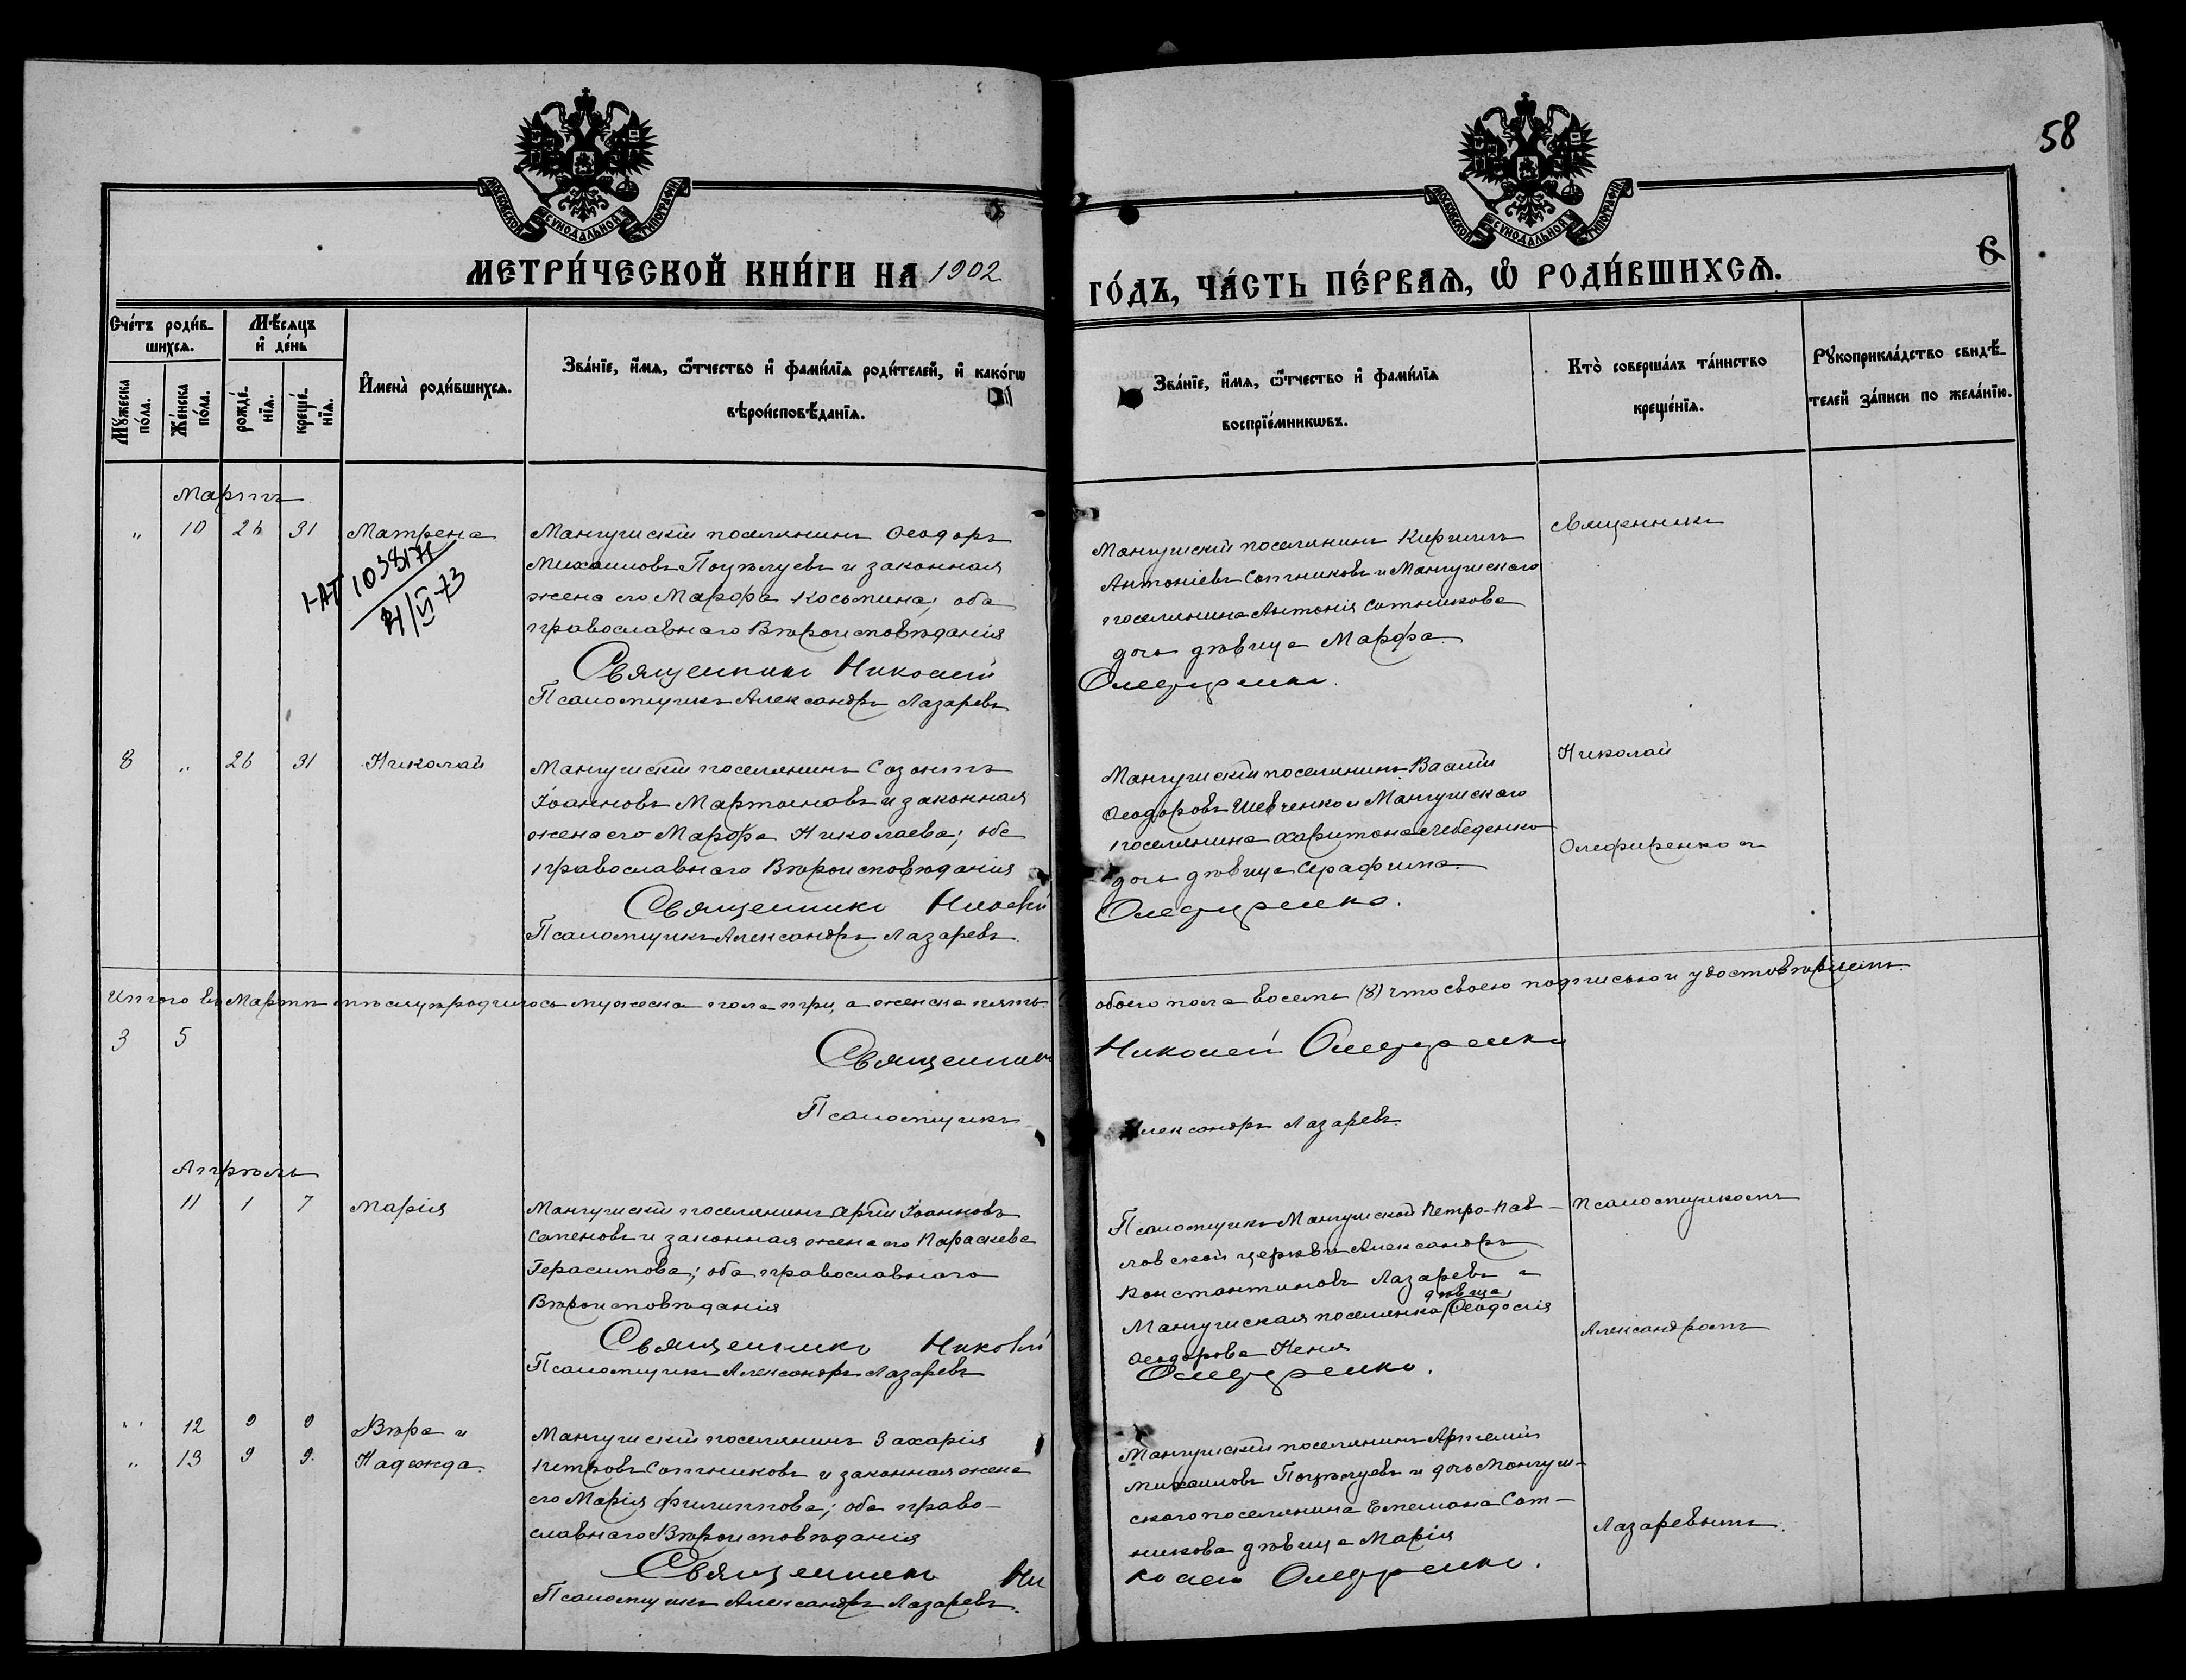 58
МОСКОВСКОЙ СѴНОДАЛЬНОЙ ТИПОГРАФІИ
МОСКОВСКОЙ СѴНОДАЛЬНОЙ ТИПОГРАФІИ
МЕТРИ́ЧЕСКОЙ КНИ́ГИ НА 1902
ГО́ДЪ, ЧА́СТЬ ПЕ́РВАѦ, Ѡ҆ РОДИ́ВШИХСѦ.
6
Сче́тъ роди́в-
шихсѧ.
Мѣ́сѧцъ
и҆ де́нь
Мꙋ́жеска
по́ла.
Же́нска
по́ла.
рожде́-
нїѧ.
креще́-
нїѧ.
И҆мена̀ роди́вшихсѧ.
Зва́нїе, и҆́мѧ, ѻ҆́тчество и҆ фами́лїѧ роди́телей, и҆ како́гѡ
вѣроисповѣ́данїѧ.
Зва́нїе, и҆́мѧ, ѻ҆́тчество и҆ фами́лїѧ
воспрїе́мникѡвъ.
Кто̀ соверша́лъ та́инство
креще́нїѧ.
Рꙋкоприкла́дство свидѣ́-
телей за́писи по жела́нїю.
Мартъ
„ 10 26 31 Матрена
Мангушскій поселянинъ Ѳеодоръ
Михаиловъ Поцѣлуевъ и законная
жена его Марѳа Косьмина; оба
православнаго Вѣроисповѣданія
Священникъ Николай
Псаломщикъ Александръ Лазаревъ
Мангушскій поселянинъ Кириллъ
Антоніевъ Сотниковъ и Мангушскаго
поселянина Антонія Сотникова
дочь дѣвица Марѳа.
Олефиренко.
Священникъ
1038171
8 „ 26 31 Николай
Мангушскій поселянинъ Созонтъ
Іоанновъ Мартыновъ и законная
жена его Марѳа Николаева; оба
православнаго Вѣроисповѣданія
Священникъ Николай
Псаломщикъ Александръ Лазаревъ.
Мангушскій поселянинъ Василій
Ѳеодоровъ Шевченко и Мангушскаго
поселянина Харитона Лебеденко
дочь дѣвица Серафима.
Олефиренко.
Николай
Олефиренко и
Итого въ Мартѣ мѣсяцѣ родилось мужеска пола три, а женска пять.
обоего пола восемь (8) что своею подписью и удостовѣряемъ.
3 5
Священникъ
Николай Олефиренко
Псаломщикъ
Александръ Лазаревъ.
Апрѣль
11 1 7 Марія
Мангушскій поселянинъ Сергій Іоанновъ
Семеновъ и законная жена его Параскева
Герасимова; оба православнаго
Вѣроисповѣданія
Священникъ Николай
Псаломщикъ Александръ Лазаревъ
Псаломщикъ Мангушской Петро-Пав-
ловской церкви Александръ
Константиновъ Лазаревъ и
Мангушская поселянка дѣвица Ѳеодосія
Ѳеодорова Кеня
Олефиренко.
Псаломщикомъ
Александромъ
„ 12 9 9 Вѣра и
„ 13 9 9. Надежда.
Мангушскій поселянинъ Захарія
Петровъ Сотниковъ и законная жена
его Марія Филиппова; оба право-
славнаго Вѣроисповѣданія
Священникъ Ни
Псаломщикъ Александръ Лазаревъ.
Мангушскій поселянинъ Артемій
Михаиловъ Поцѣлуевъ и дочь Мангуш-
скаго поселянина Емелiана Сот-
никова дѣвица Марія
колай Олефиренко.
Лазаревымъ.